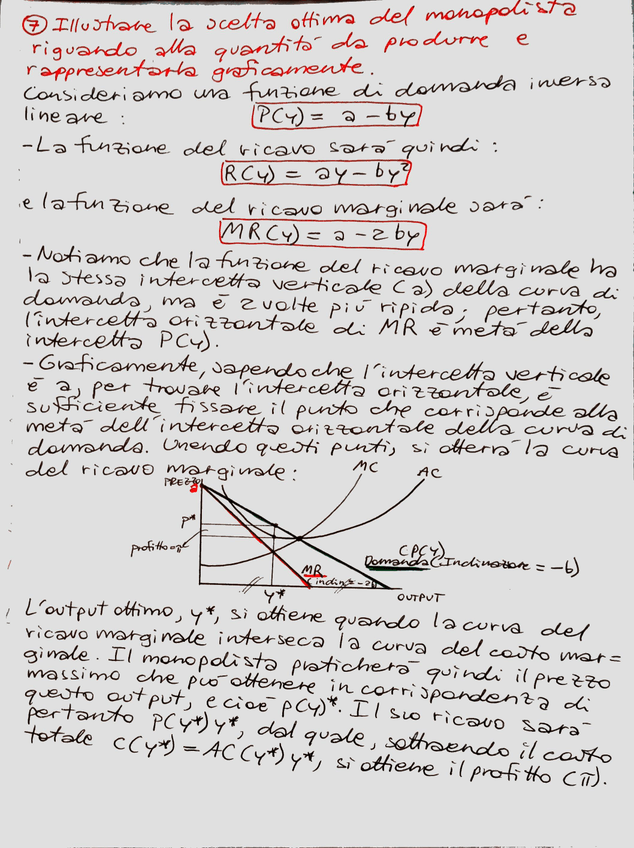 ⑦ Illustrare la scelta ottima del monopolista
riguardo alla quantità da produrre e
rappresentarla graficamente.
Consideriamo una funzione di domanda inversa
lineare : P(y) = a - by
- La funzione del ricavo sarà quindi :
R(y) = ay - by²
e la funzione del ricavo marginale sarà :
MR(y) = a - 2by
- Notiamo che la funzione del ricavo marginale ha
la stessa intercetta verticale (a) della curva di
domanda, ma è 2 volte più ripida; pertanto,
l'intercetta orizzontale di MR è metà della
intercetta P(y).
- Graficamente, sapendo che l'intercetta verticale
è a, per trovare l'intercetta orizzontale, è
sufficiente fissare il punto che corrisponde alla
metà dell'intercetta orizzontale della curva di
domanda. Unendo questi punti, si otterrà la curva
del ricavo marginale :
MC
AC
PREZZO
a
p*
profitto=π
(P(y)
Domanda (Inclinazione = -b)
MR
(inclin=-2b)
y*
OUTPUT
L'output ottimo, y*, si ottiene quando la curva del
ricavo marginale interseca la curva del costo mar=
ginale. Il monopolista praticherà quindi il prezzo
massimo che può ottenere in corrispondenza di
questo output, e cioè p(y)*. Il suo ricavo sarà
pertanto P(y*)y*, dal quale, sottraendo il costo
totale C(y*) = AC(y*)y*, si ottiene il profitto (π).